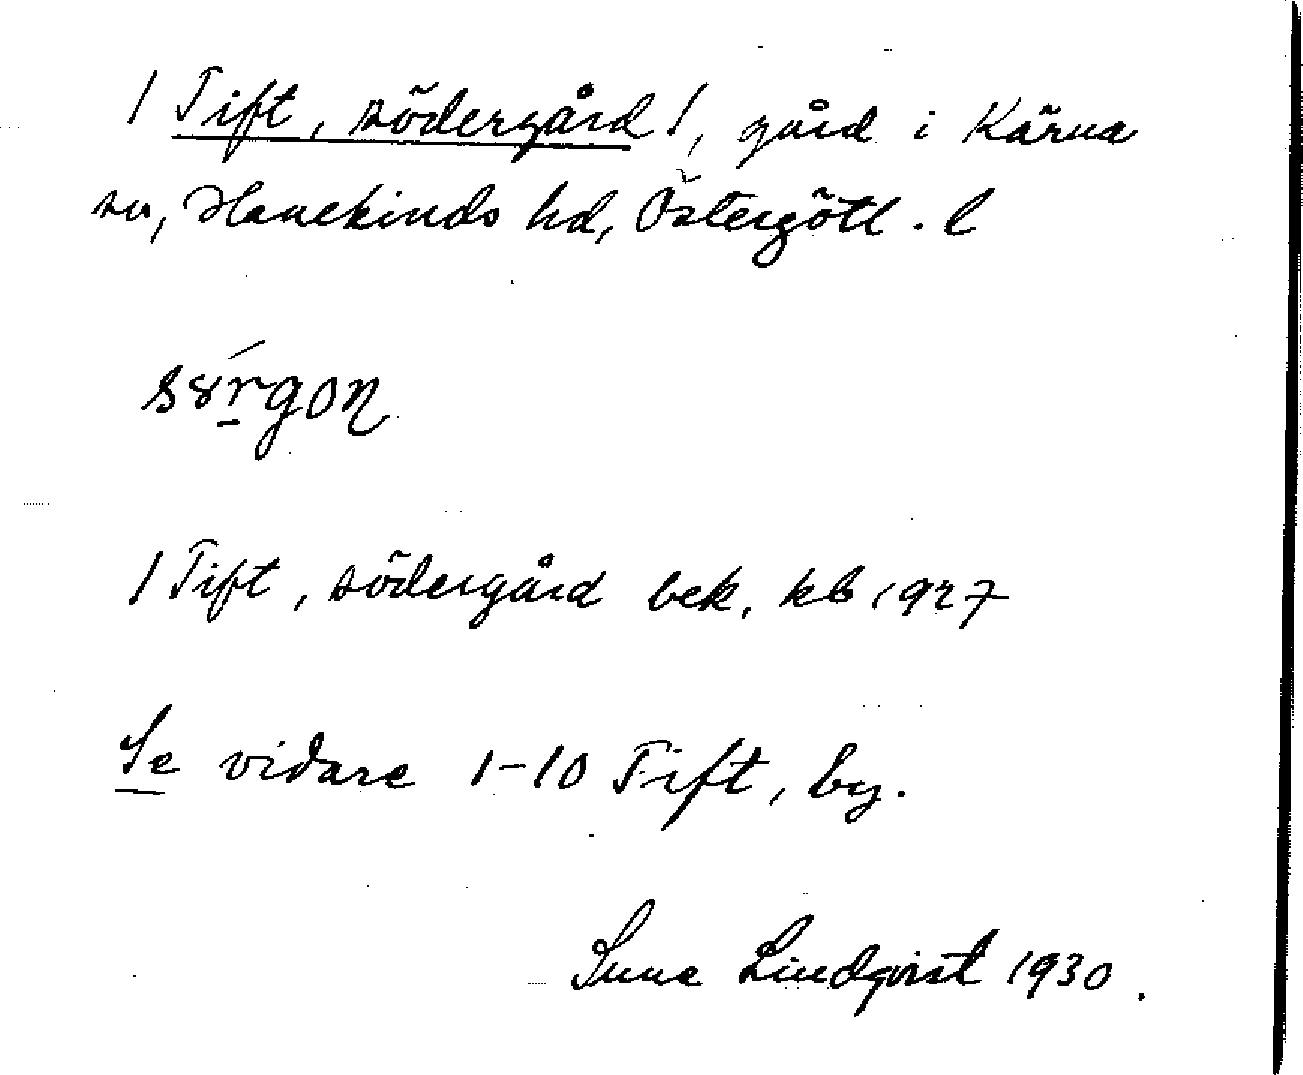 1 Tift, södergård!, gård i Kärna
sn, Hanekinds hd, Östergötl. l
1 Tift, södergård bek. kb 1927
Se vidare 1-10 Tift, by.
Sune Lindqvist 1930.